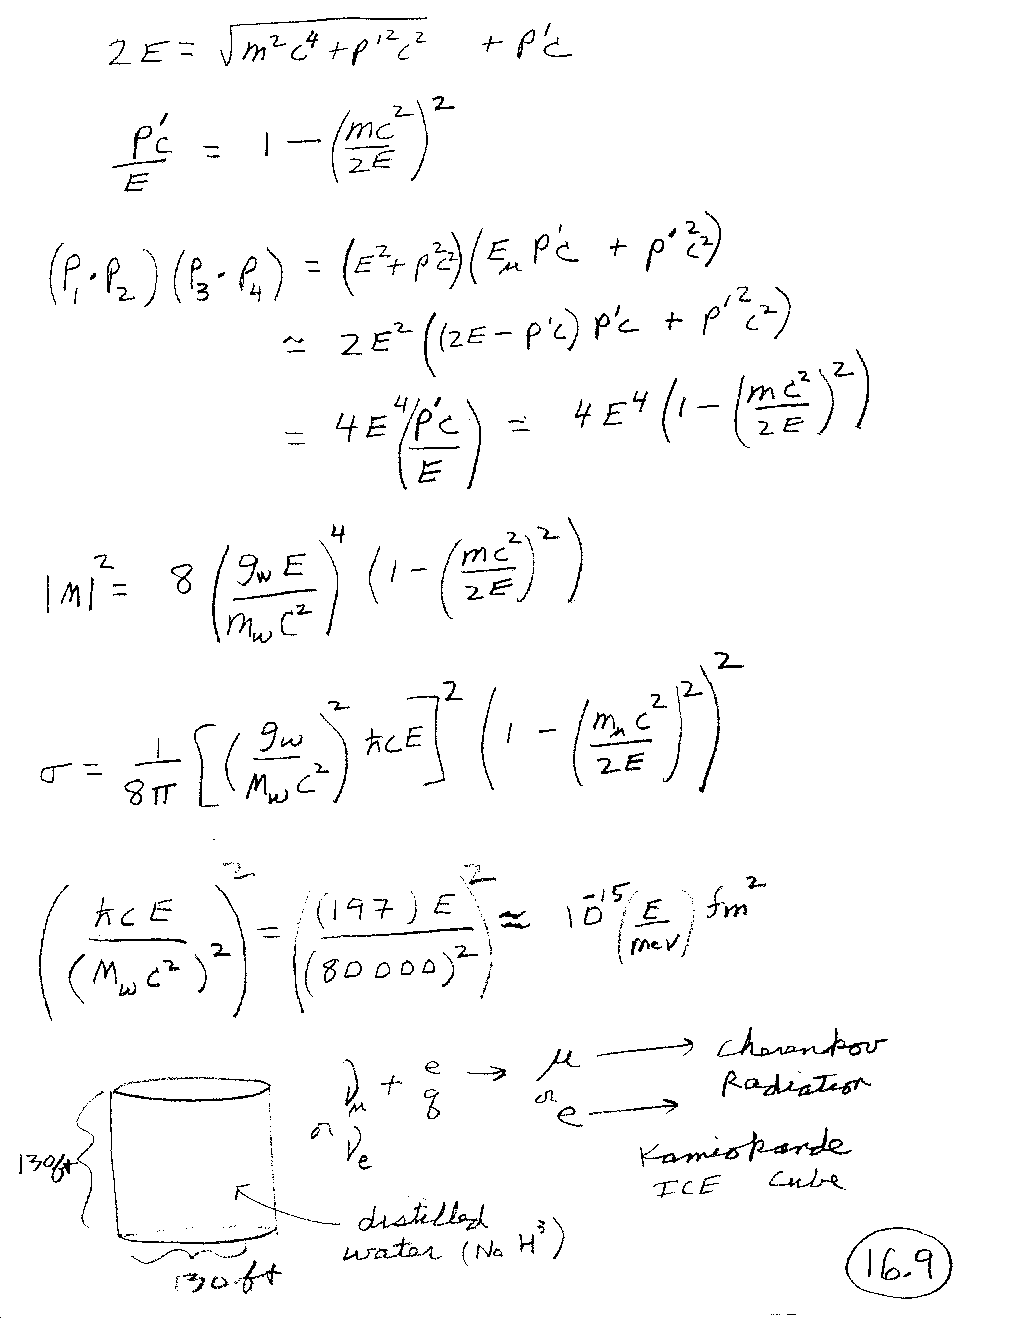 2E = √(m²c⁴ + p'²c²) + p'c
p'c/E = 1 − (mc²/2E)²
(P₁·P₂)(P₃·P₄) = (E² + p²c²)(E_μ p'c + p'²c²)
≃ 2E² ((2E − p'c) p'c + p'²c²)
= 4E⁴ (p'c/E) = 4E⁴ (1 − (mc²/2E)²)
|M|² = 8 (g_w E / m_w c²)⁴ (1 − (mc²/2E)²)
σ = 1/8π [(g_w / M_w c²)² ħcE]² (1 − (m_μ c²/2E)²)²
(ħcE / (M_w c²)²)² = ((197)E / (80000)²)² ≈ 10⁻¹⁵ (E/mev) fm²
ν_μ + e → μ → Cherenkov
or ν_e q or e → Radiation
130ft
Kamiokande
ICE Cube
distilled
water (No H³)
130ft
16.9